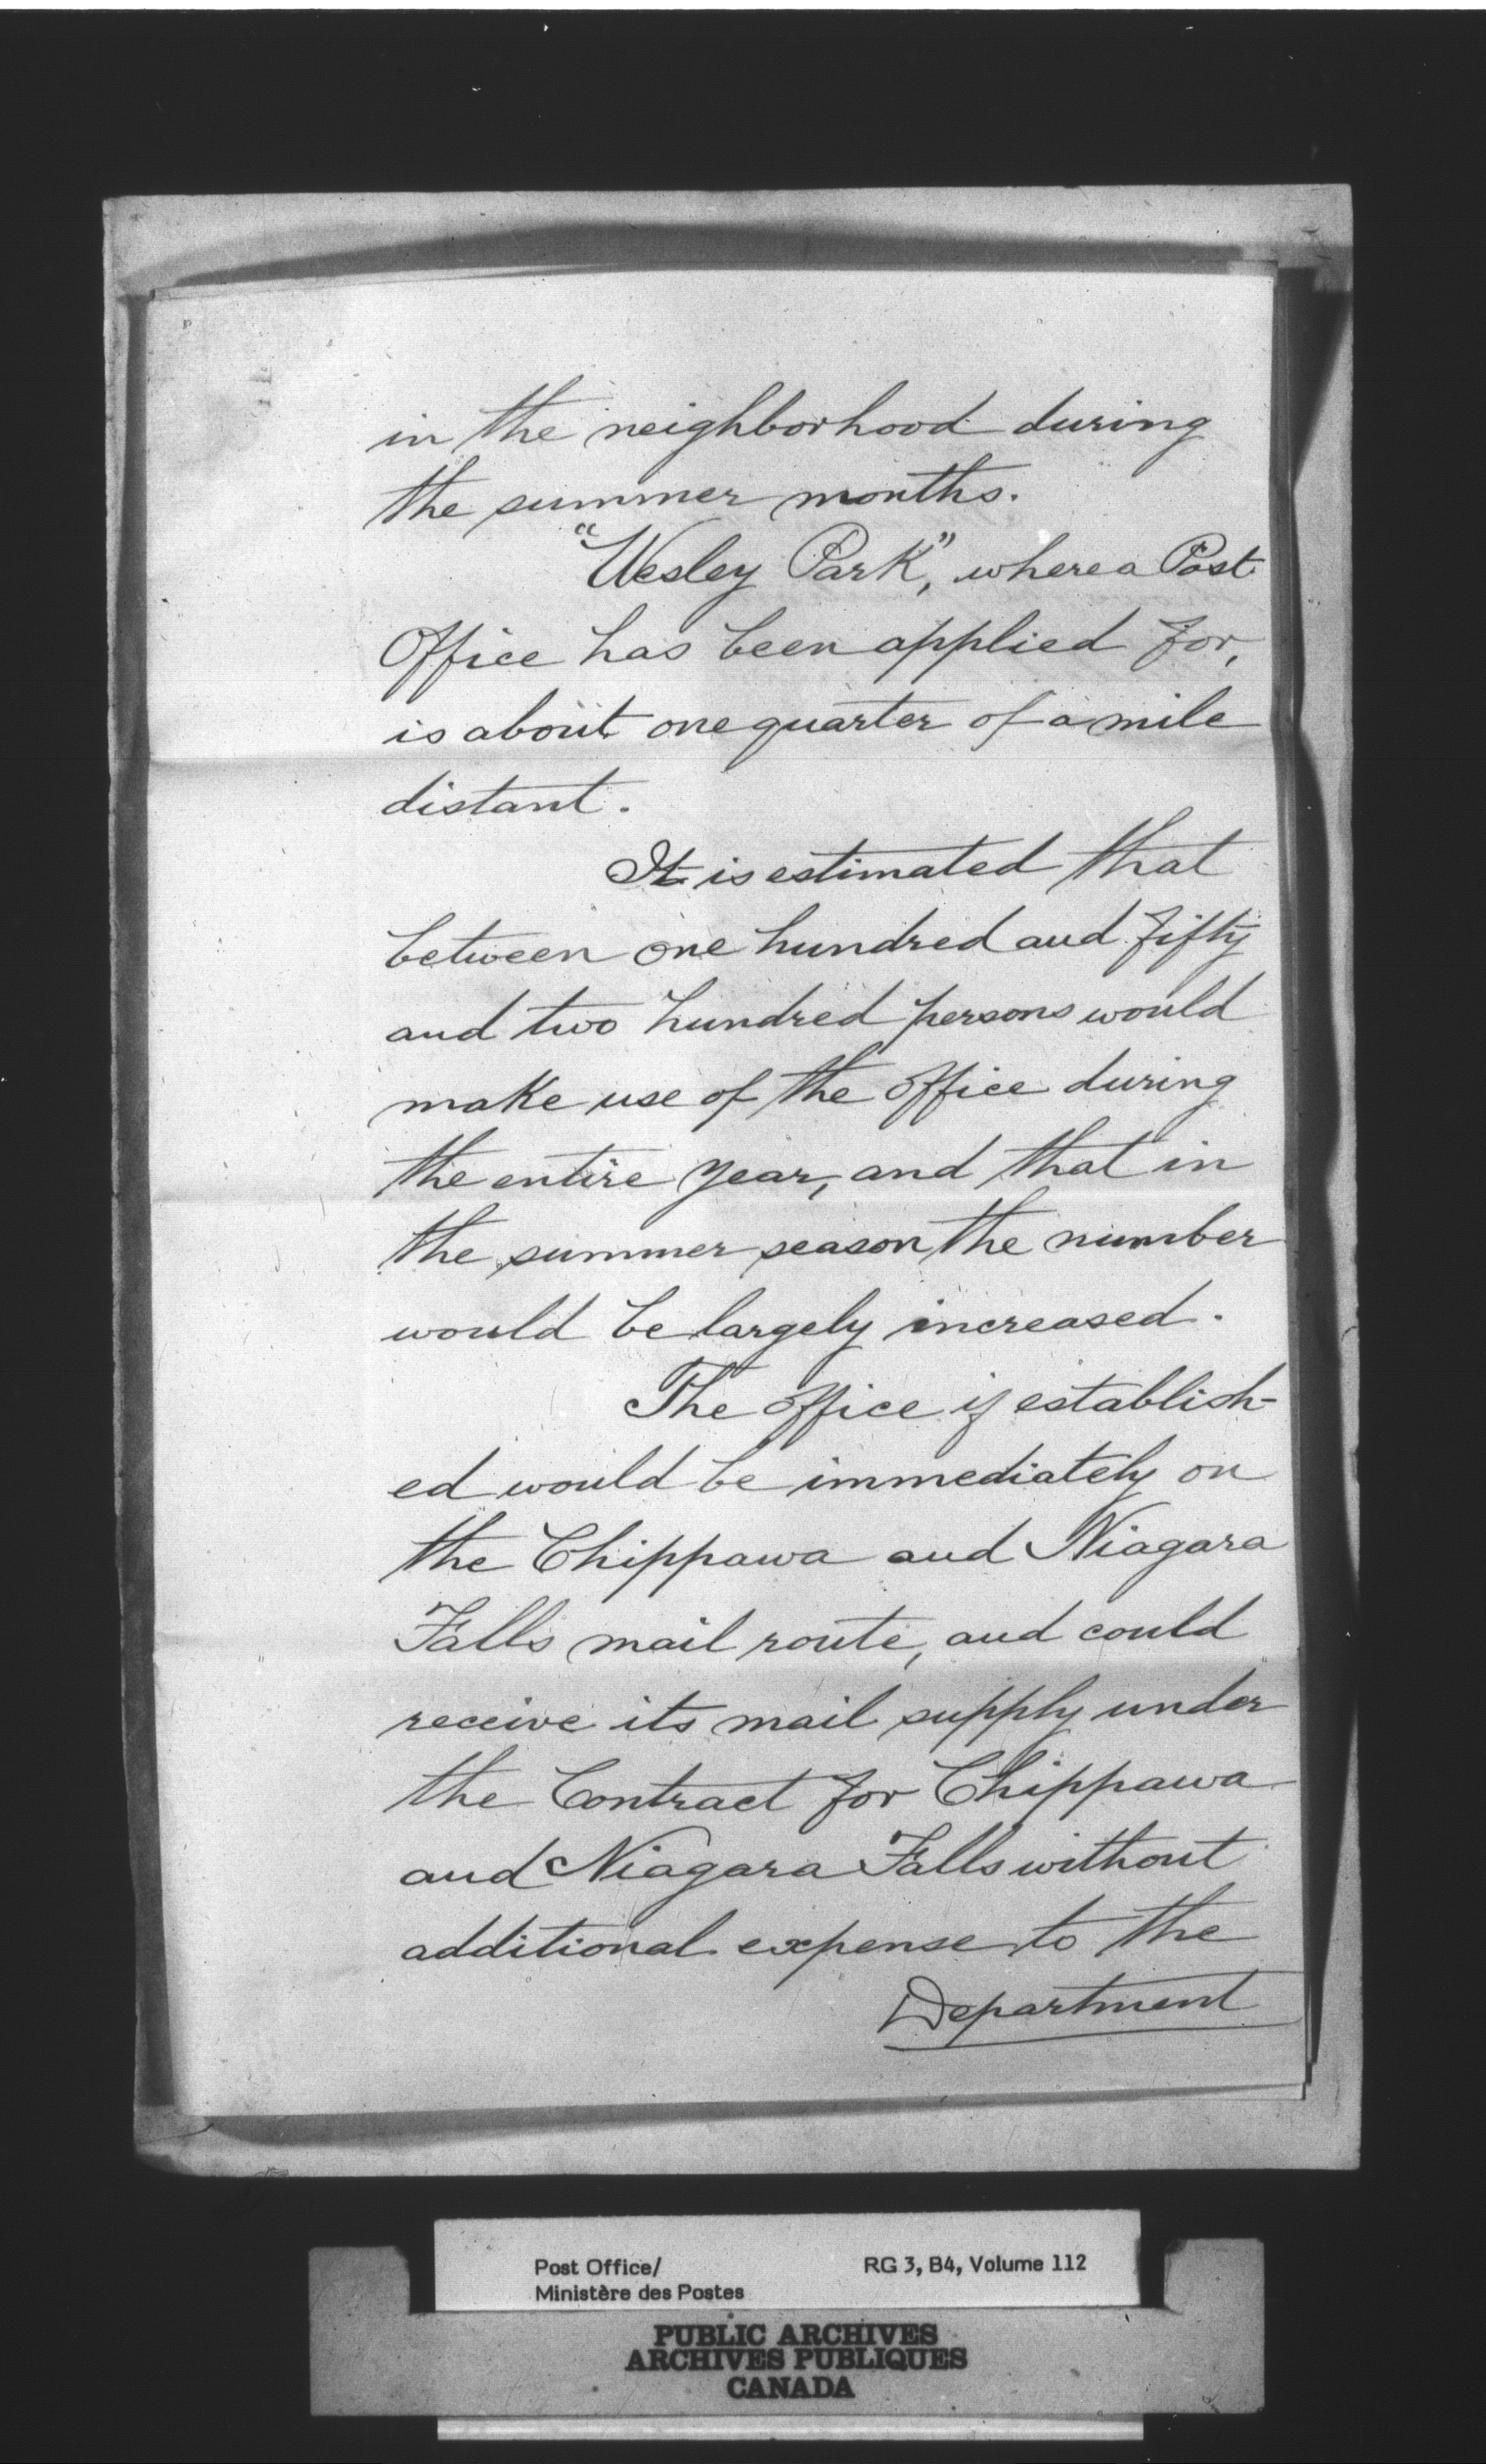 in the neighborhood during
the summer months.
"Wesley Park", where a Post
Office has been applied for,
is about one quarter of a mile
distant.
It is estimated that
between one hundred and fifty
and two hundred persons would
make use of the office during
the entire year, and that in
the summer season the number
would be largely increased.
The office if establish-
ed would be immediately on
the Chippawa and Niagara
Falls mail route, and could
receive its mail supply under
the Contract for Chippawa
and Niagara Falls without
additional expense to the
Department
Post Office/ RG 3, B4, Volume 112
Ministère des Postes
PUBLIC ARCHIVES
ARCHIVES PUBLIQUES
CANADA